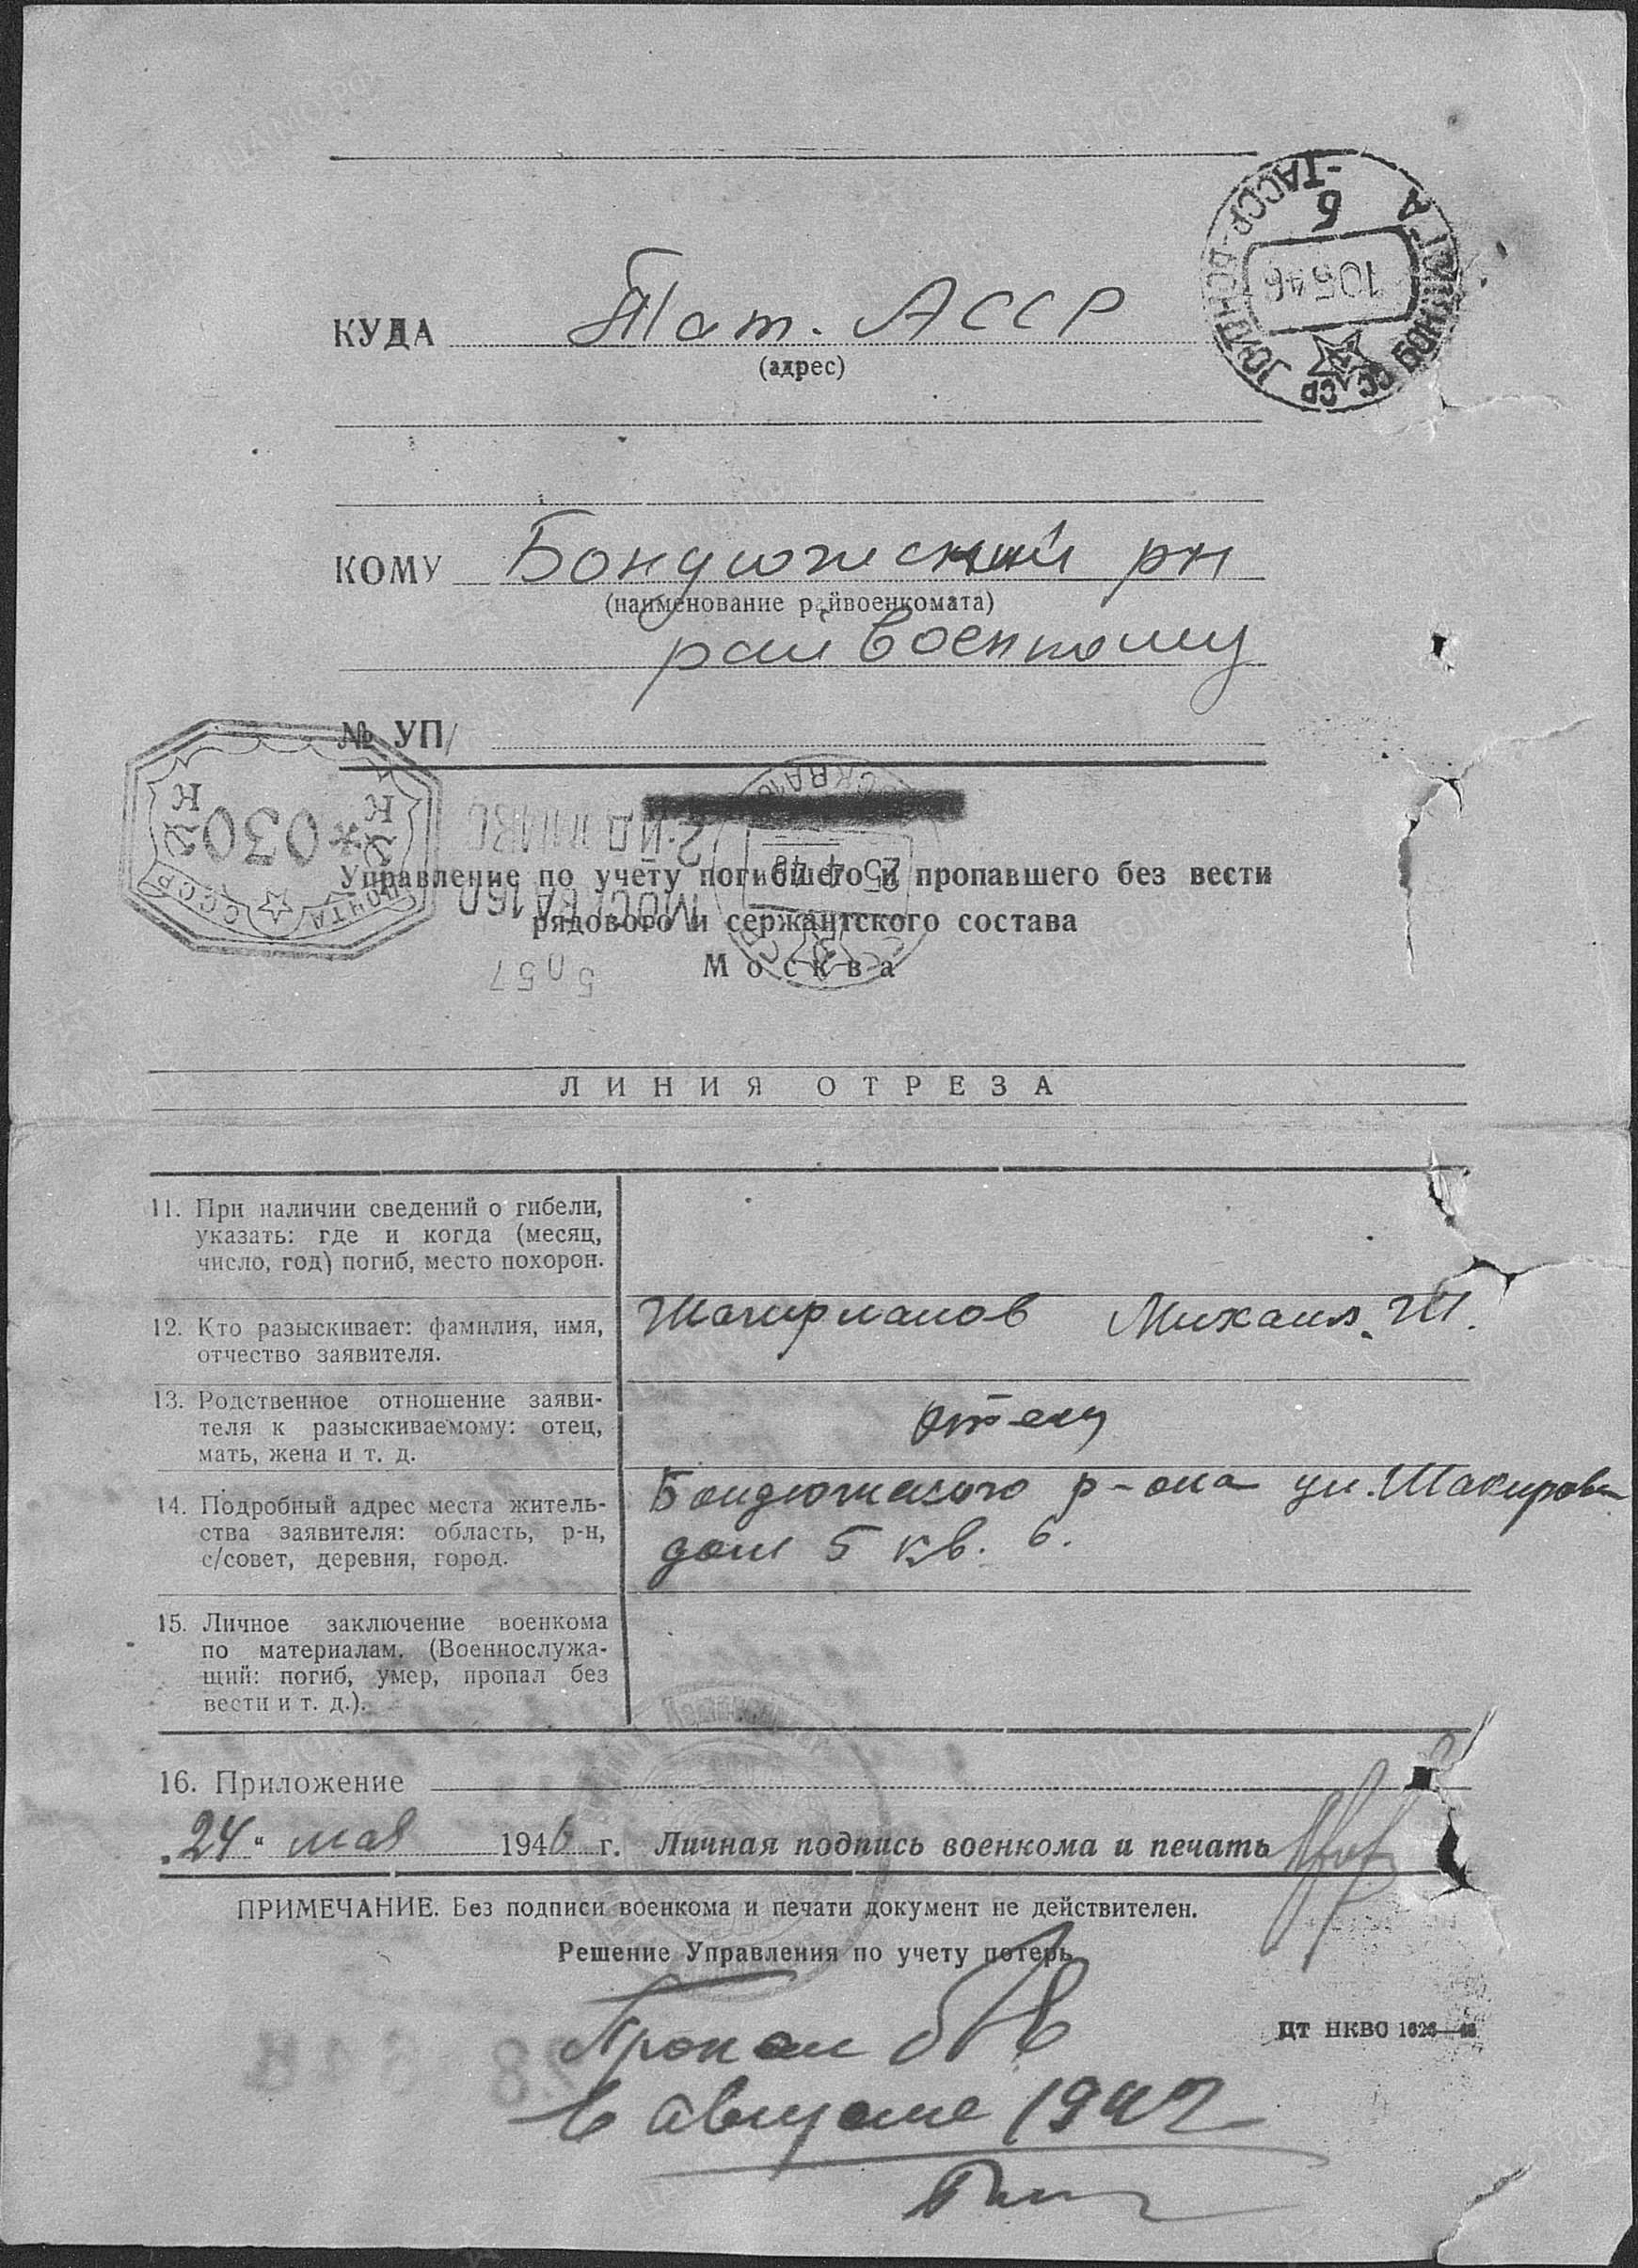 КУДА Тат. АССР
(адрес)
КОМУ Бондюжский рн
(наименование райвоенкомата)
райвоенкому
№ УП/
Управление по учету погибшего и пропавшего без вести
рядового и сержантского состава
Москва
ПОЧТА СССР
030
МОСКВА 160
5057
ЛИНИЯ ОТРЕЗА
11. При наличии сведений о гибели,
указать: где и когда (месяц,
число, год) погиб, место похорон.
12. Кто разыскивает: фамилия, имя,
отчество заявителя.
Шагирманов Михаил. Ш.
13. Родственное отношение заяви-
теля к разыскиваемому: отец,
мать, жена и т. д.
отец
14. Подробный адрес места житель-
ства заявителя: область, р-н,
с/совет, деревня, город.
Бондюжского р-она ул. Шакирова
дом 5 кв. 6.
15. Личное заключение военкома
по материалам. (Военнослужа-
щий: погиб, умер, пропал без
вести и т. д.).
16. Приложение
„24" мая 1946 г. Личная подпись военкома и печать
ПРИМЕЧАНИЕ. Без подписи военкома и печати документ не действителен.
Решение Управления по учету потерь
Пропал б/в
в августе 1942
ЦТ НКВО 1626—46